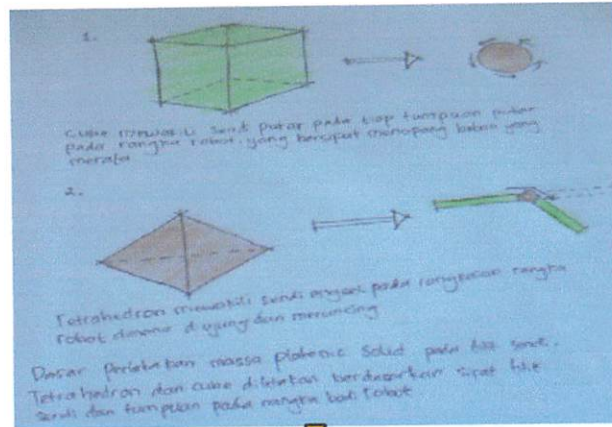 1.
Cube mewakili sendi putar pada tiap tumpuan putar
pada rangka robot, yang bersifat menopang beban yang
merata
2.
Tetrahedron mewakili sendi engsel pada rangkaian rangka
robot dimana diujung dan meruncing
Dasar perletakan massa platonic solid pada titik sendi.
Tetrahedron dan cube diletakan berdasarkan sifat titik
sendi dan tumpuan pada rangka badi robot